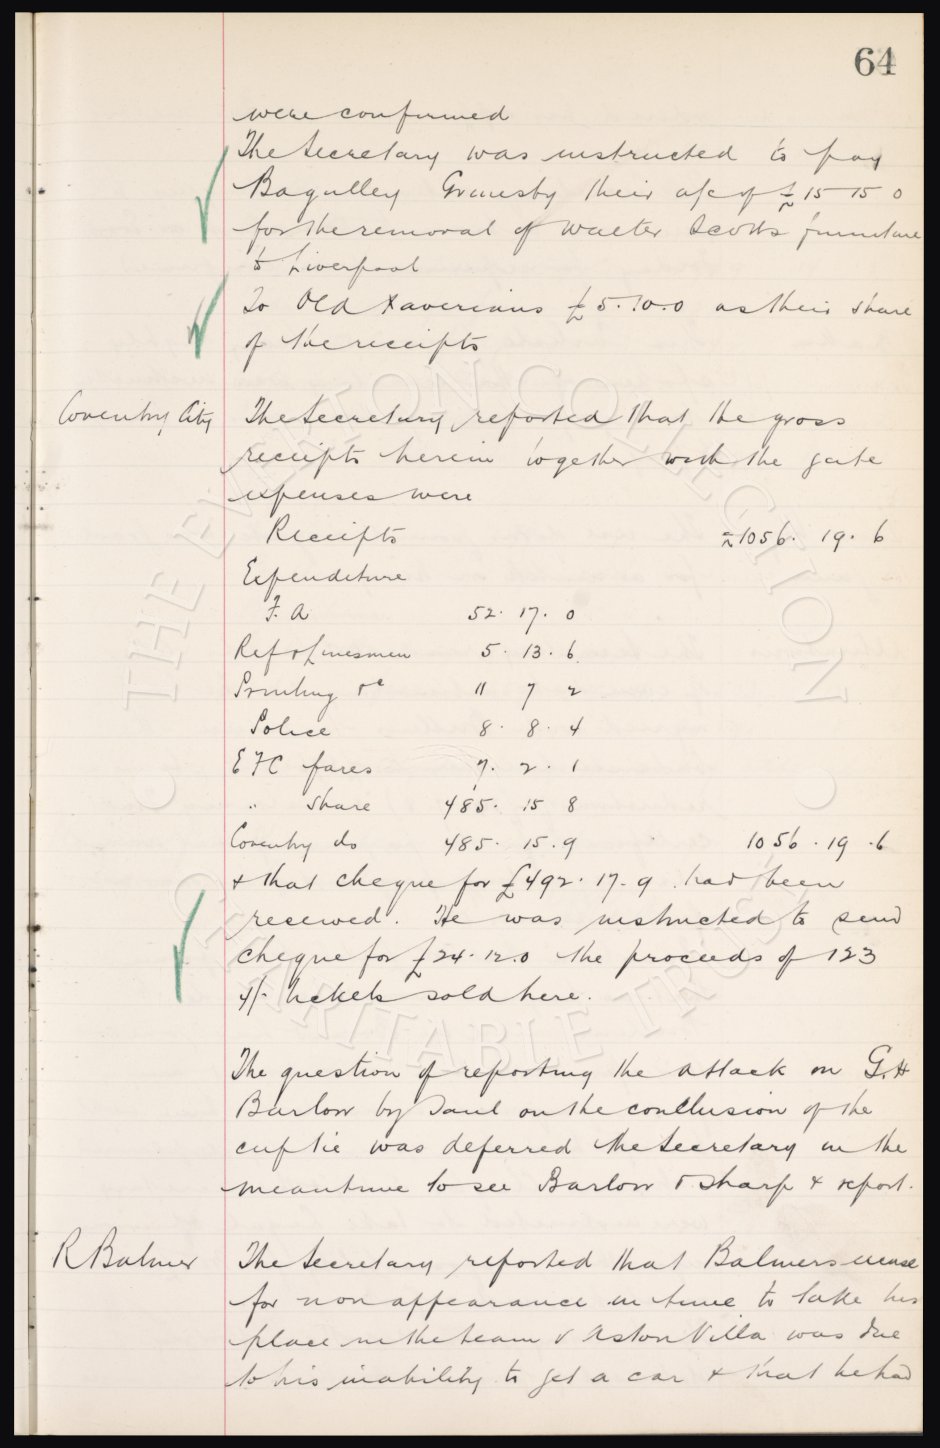 64
were confirmed
The Secretary was instructed to pay
Bagulley Grimesby their a/c of £15 15 0
for the removal of Walter Scotts furniture
to Liverpool
To Old Xaverians £5.10.0 as their share
of the receipts
Coventry City The Secretary reported that the gross
receipts herein together with the gate
expenses were
Receipts £1056. 19. 6
Expenditure
F. A 52. 17. 0
Ref & Linesmen 5. 13. 6
Printing &c 11 7 2
Police 8. 8. 4
EFC fares 7. 2. 1
" share 485. 15 8
Coventry do 485. 15. 9 1056. 19. 6
& that cheque for £492. 17. 9. had been
received. He was instructed to send
cheque for £24.12.0 the proceeds of 123
4/- tickets sold here.
The question of reporting the attack on G.H
Barlow by on the conclusion of the
cup tie was deferred the Secretary in the
meantime to see Barlow & Sharp & report.
R Balmer The Secretary reported that Balmers excuse
for non appearance in time to take his
place in the team v Aston Villa was due
to his inability to get a car & that he had
THE EVERTON COLLECTION
CHARITABLE TRUST